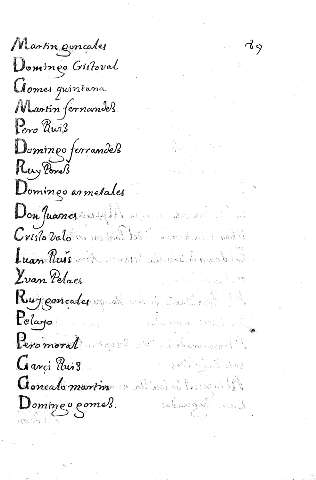 Martin gonçales 89
Domingo Cristoval
Gomes quintana
Martin fernandes
Pero Ruis
Domingo ferrandes
Ruy Peres
Domingo armetales
Don Juanes
Cristovalo
Iuan Ruis
Yvan Pelaes
Ruy gonçales
Pelayo
Pero moral
Garçi Ruis
Goncalo martin
Domingo gomes.